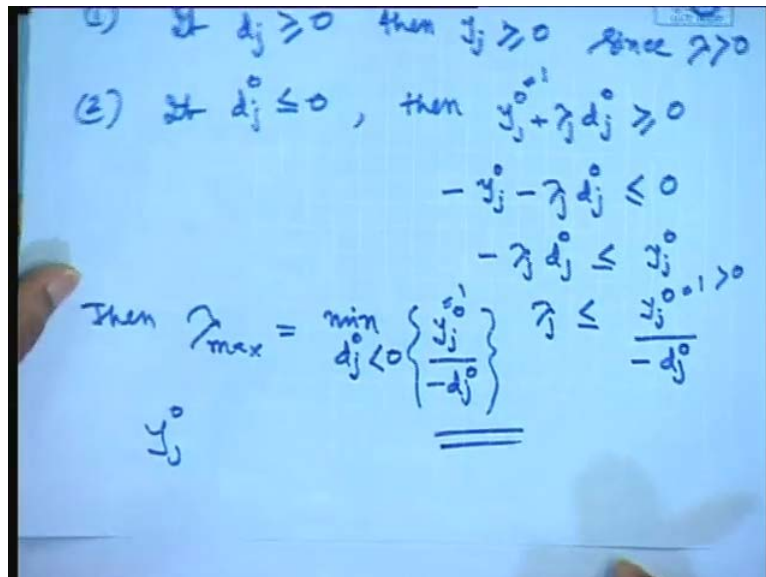 (1) If dj ≥ 0 then yj ≥ 0 since λ>0
(2) If dj⁰ ≤ 0, then yj⁰⁼¹ + λj dj⁰ ≥ 0
- yj⁰ - λj dj⁰ ≤ 0
- λj dj⁰ ≤ yj⁰
Then λmax = min dj⁰<0 { yj⁰⁼¹ / -dj⁰ } λj ≤ yj⁰⁼¹>0 / -dj⁰
yj⁰